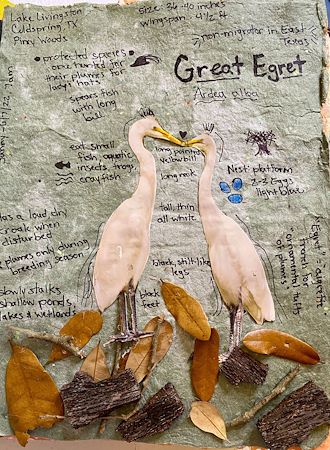 Lake Livingston
Coldspring, TX
Piney Woods
Size: 36-40 inches
wingspan: 4 1/2 ft
non-migrator in East
Texas
• protected species
once hunted for
their plumes for
lady's hats
Great Egret
Ardea alba
spears fish
with long
bill
long pointed
yellow bill
long neck
• eat small
fish, aquatic
insects, frogs,
crayfish
Nest: platform
2-3 Eggs
light blue
tall, thin
all white
has a loud dry
croak when
disturbed
plumes only during
breeding season
black, stilt-like
legs
black
feet
slowly stalks
shallow ponds,
lakes & wetlands
Egret = aigrette
French for
"ornamental tufts
of plumes"